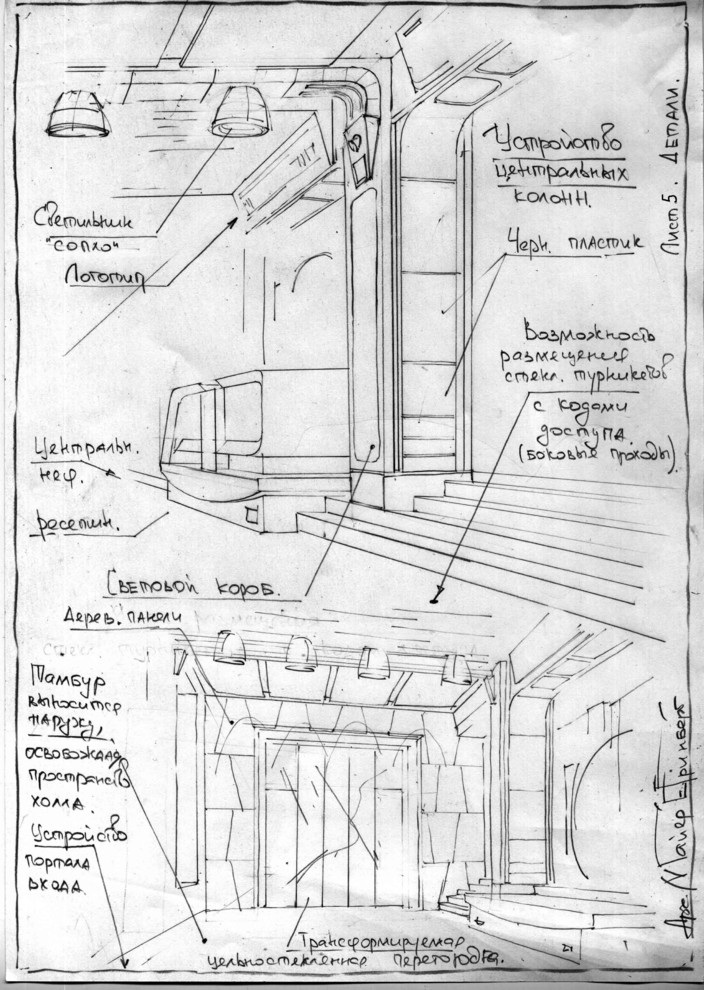 Лист 5. Детали.
Устройство
центральных
колонн.
Светильник
"сопхо"
Логотип
Черн. пластик
Возможность
размещения
стекл. турникетов
с кодами
доступа.
(боковые проходы)
Центральн.
неф.
ресепшн.
Световой короб.
Дерев. панели
Тамбур
выносится
наружу,
освобождая
пространство
холла.
Устройство
портала
входа
Трансформируемая
цельностеклянная перегородка.
Арх. Майер Гринберг